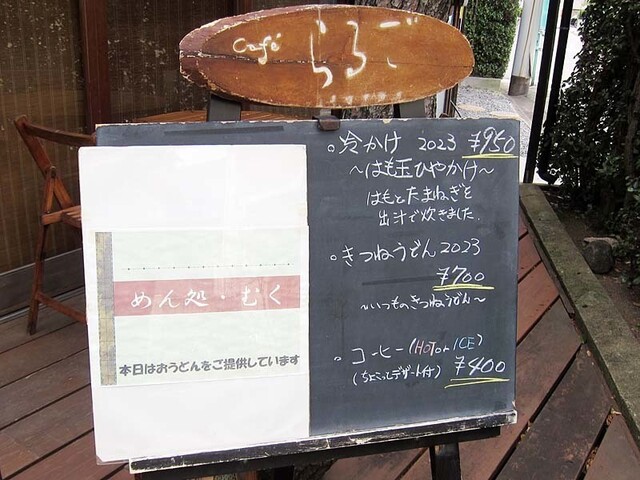 Café らるご
めん処・むく
本日はおうどんをご提供しています
。冷かけ 2023 ¥950
~はも玉ひやかけ~
はもとたまねぎを
出汁で炊きました.
。きつねうどん2023
¥700
~いつものきつねうどん~
。コーヒー(HOT or ICE)
(ちょこっとデザート付) ¥400